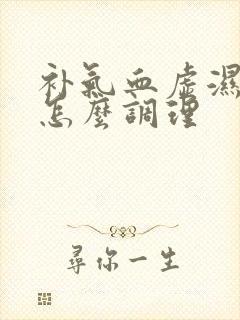 补氣血虛濕
怎麼調理
尋你一生